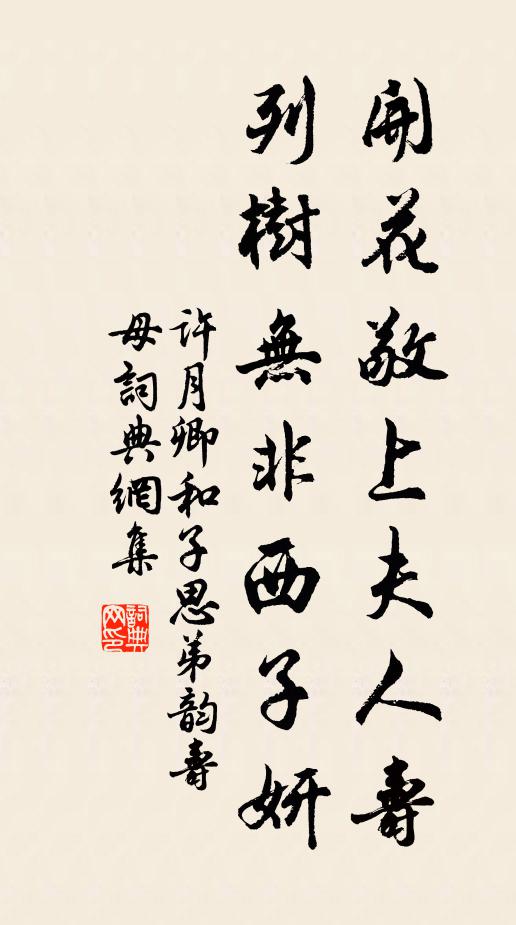 開花敬上夫人壽
列樹無非西子妍
許月卿和子思弟韵壽
母詞典網集
詞典
网印